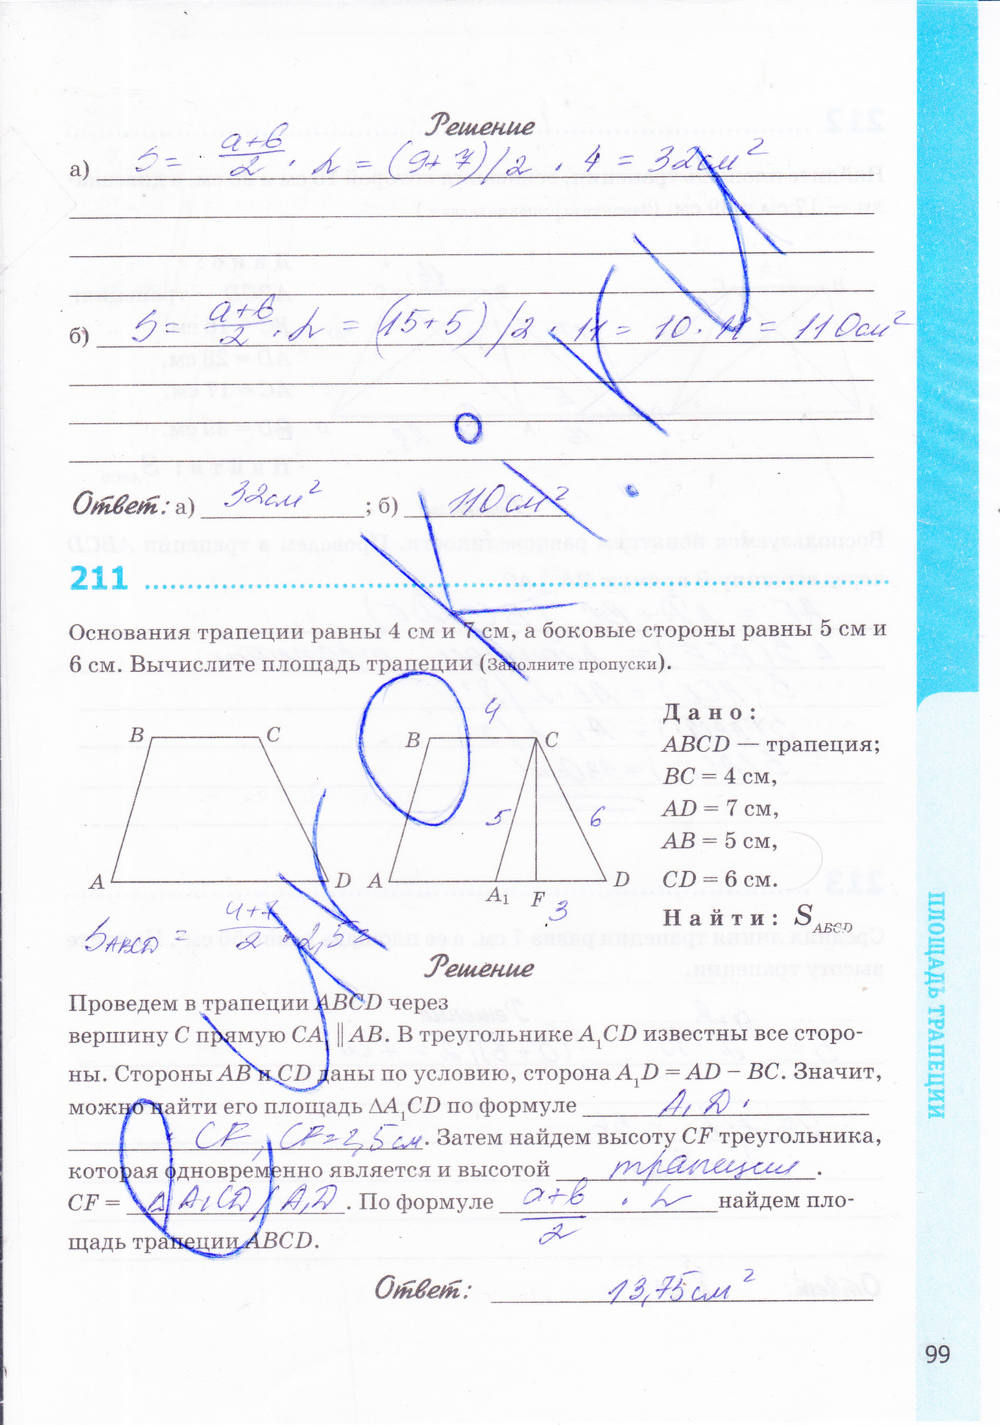 Решение
а) S = a+b/2 · h = (9+7)/2 · 4 = 32см²
б) S = a+b/2 · h = (15+5)/2 · 11 = 10 · 11 = 110см²
Ответ: а) 32см² ; б) 110см²
211
Основания трапеции равны 4 см и 7 см, а боковые стороны равны 5 см и
6 см. Вычислите площадь трапеции (Заполните пропуски).
B C
A D
4
B C
5 6
A A₁ F D
3
Дано:
ABCD — трапеция;
BC = 4 см,
AD = 7 см,
AB = 5 см,
CD = 6 см.
Найти: S ABCD
S ABCD = 4+7/2 · 2,5 =
Решение
Проведем в трапеции ABCD через
вершину C прямую CA₁ || AB. В треугольнике A₁CD известны все сторо-
ны. Стороны AB и CD даны по условию, сторона A₁D = AD – BC. Значит,
можно найти его площадь ΔA₁CD по формуле A₁D ·
· CF, CF = 2,5см. Затем найдем высоту CF треугольника,
которая одновременно является и высотой трапеции.
CF = Δ A₁CD / A₁D. По формуле a+b/2 · h найдем пло-
щадь трапеции ABCD.
Ответ: 13,75см²
ПЛОЩАДЬ ТРАПЕЦИИ
99